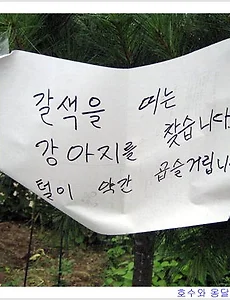 갈색을 띠는
강아지를 찾습니다
털이 약간 곱슬거립니
호수와 옹달